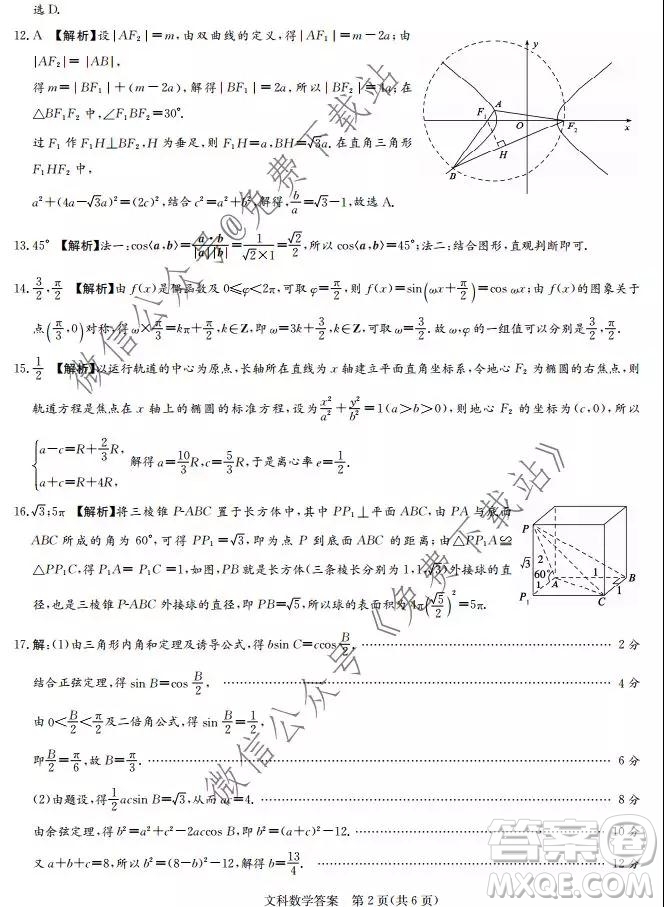 选D.
12. A 【解析】设|AF₂|=m,由双曲线的定义,得|AF₁|=m−2a;由
|AF₂|=|AB|,
得m=|BF₁|+(m−2a),解得|BF₁|=2a,所以|BF₂|=4a;在
△BF₁F₂中,∠F₁BF₂=30°.
过F₁作F₁H⊥BF₂,H为垂足,则F₁H=a,BH=√3a.在直角三角形
F₁HF₂中,
a²+(4a−√3a)²=(2c)²,结合c²=a²+b²,解得,b/a=√3−1,故选A.
y
A
F₁
O
F₂
x
H
B
13. 45° 【解析】法一:cos⟨a,b⟩=a·b/|a||b|=1/(√2×1)=√2/2,所以cos⟨a,b⟩=45°;法二:结合图形,直观判断即可.
14. 3/2,π/2 【解析】由f(x)是偶函数及0⩽φ<2π,可取φ=π/2,则f(x)=sin(ωx+π/2)=cos ωx;由f(x)的图象关于
点(π/3,0)对称,得ω×π/3=kπ+π/2,k∈Z,即ω=3k+3/2,k∈Z,可取ω=3/2.故ω,φ的一组值可以分别是3/2,π/2.
15. 1/2 【解析】以运行轨道的中心为原点,长轴所在直线为x轴建立平面直角坐标系,令地心F₂为椭圆的右焦点,则
轨道方程是焦点在x轴上的椭圆的标准方程,设为x²/a²+y²/b²=1(a>b>0),则地心F₂的坐标为(c,0),所以
{a−c=R+2/3R,
a+c=R+4R, 解得a=10/3R,c=5/3R,于是离心率e=1/2.
16. √3;5π 【解析】将三棱锥P-ABC置于长方体中,其中PP₁⊥平面ABC,由PA与底面
ABC所成的角为60°,可得PP₁=√3,即为点P到底面ABC的距离;由△PP₁A≌
△PP₁C,得P₁A=P₁C=1,如图,PB就是长方体(三条棱长分别为1,1,√3)外接球的直
径,也是三棱锥P-ABC外接球的直径,即PB=√5,所以球的表面积为4π(√5/2)²=5π.
P
√3
2
60°
1
P₁
A
1
B
1
C
17. 解:(1)由三角形内角和定理及诱导公式,得bsin C=ccos B/2, 2分
结合正弦定理,得sin B=cos B/2, 4分
由0<B/2<π/2及二倍角公式,得sin B/2=1/2,
即B/2=π/6,故B=π/3. 6分
(2)由题设,得1/2acsin B=√3,从而ac=4. 8分
由余弦定理,得b²=a²+c²−2accos B,即b²=(a+c)²−12. 10分
又a+b+c=8,所以b²=(8−b)²−12,解得b=13/4. 12分
文科数学答案 第2页(共6页)
微信公众号@免费下载站
微信公众号《免费下载站》
答案圈
MXQE.COM